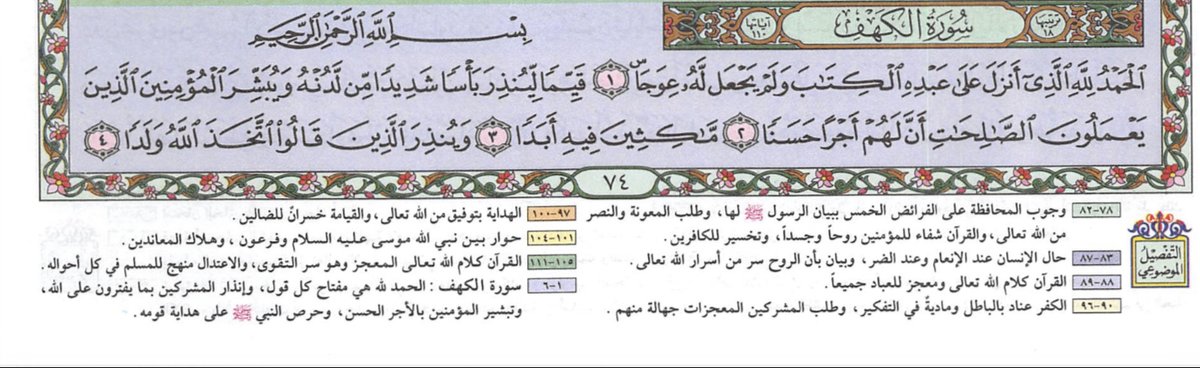 ترتيبها ١٨ سُورَةُ الكَهْفِ آياتها ١١٠
بِسْمِ ٱللَّهِ ٱلرَّحْمَٰنِ ٱلرَّحِيمِ
ٱلْحَمْدُ لِلَّهِ ٱلَّذِىٓ أَنزَلَ عَلَىٰ عَبْدِهِ ٱلْكِتَٰبَ وَلَمْ يَجْعَل لَّهُۥ عِوَجَاۜ ١ قَيِّمًا لِّيُنذِرَ بَأْسًا شَدِيدًا مِّن لَّدُنْهُ وَيُبَشِّرَ ٱلْمُؤْمِنِينَ ٱلَّذِينَ
يَعْمَلُونَ ٱلصَّٰلِحَٰتِ أَنَّ لَهُمْ أَجْرًا حَسَنًا ٢ مَّٰكِثِينَ فِيهِ أَبَدًا ٣ وَيُنذِرَ ٱلَّذِينَ قَالُوا۟ ٱتَّخَذَ ٱللَّهُ وَلَدًا ٤
٧٤
التفصيل
الموضوعي
٧٨-٨٢ وجوب المحافظة على الفرائض الخمس ببيان الرسول ﷺ لها، وطلب المعونة والنصر
من الله تعالى، والقرآن شفاء للمؤمنين روحاً وجسداً، وتخسير للكافرين.
٨٣-٨٧ حال الإنسان عند الإنعام وعند الضر، وبيان بأن الروح سر من أسرار الله تعالى.
٨٨-٨٩ القرآن كلام الله تعالى ومعجز للعباد جميعاً.
٩٠-٩٦ الكفر عناد بالباطل وماديةٌ في التفكير، وطلب المشركين المعجزات جهالة منهم.
٩٧-١٠٠ الهداية بتوفيق من الله تعالى، والقيامة خسرانٌ للضالين.
١٠١-١٠٤ حوار بين نبي الله موسى عليه السلام وفرعون، وهلاك المعاندين.
١٠٥-١١١ القرآن كلام الله تعالى المعجز وهو سر التقوى، والاعتدال منهج للمسلم في كل أحواله.
١-٦ سورة الكهف: الحمد لله هي مفتاح كل قول، وإنذار المشركين بما يفترون على الله،
وتبشير المؤمنين بالأجر الحسن، وحرص النبي ﷺ على هداية قومه.